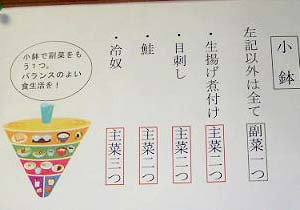 小鉢
左記以外は全て 副菜一つ
・生揚げ煮付け 主菜二つ
・目刺し 主菜二つ
・鮭 主菜二つ
・冷奴 主菜三つ
小鉢で副菜をも
う1つ。
バランスのよい
食生活を!